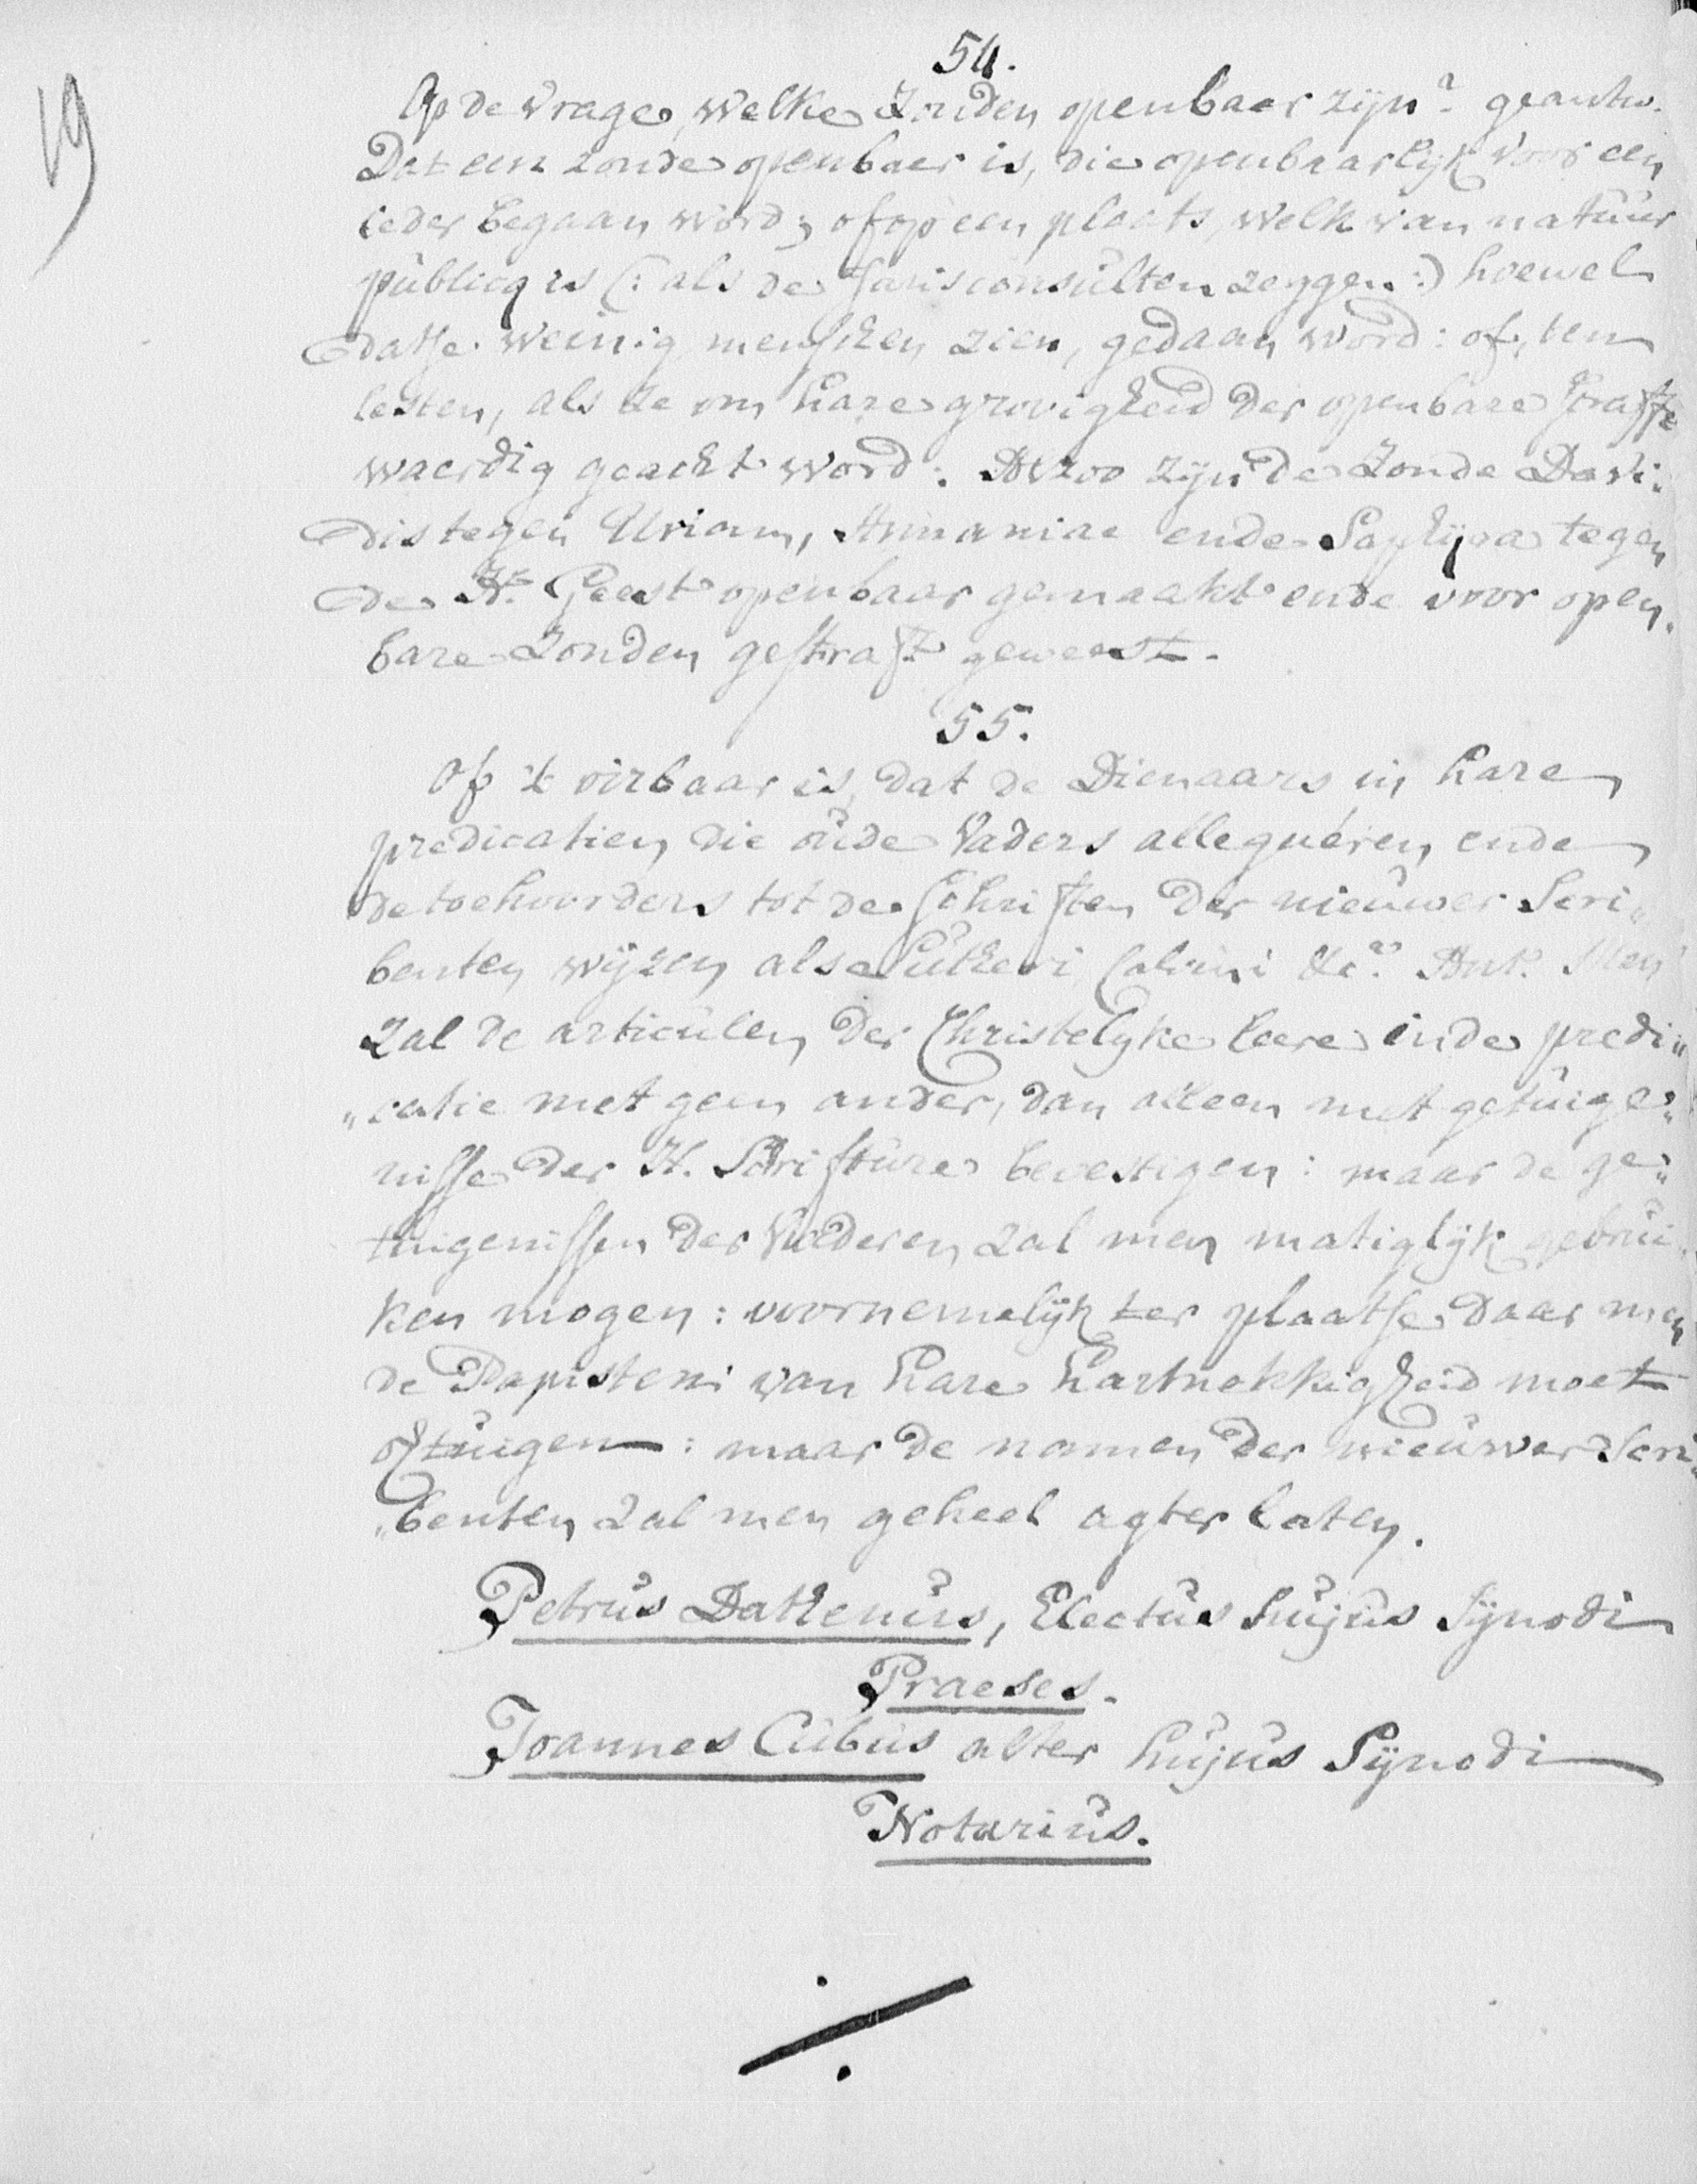 19
54.
Op de vrage, welke Zonden openbaer zijn? geantw.
Dat een zonde openbaer is, die openbaarlijk voor een
ieder begaan word; of op een plaets, welk van natuur
publicq is (: als de Jurisconsulten zeggen :) hoewel
datse weinig menschen zien, gedaan word: of, ten
lesten, als ze om hare grovigheid der openbare straffe
waerdig geacht word. Alzoo zijn de Zonde Davi:
dis tegen Uriam, Annaniae ende Saphijra tegen
de H. Geest openbaar gemaekt ende voor open,
bare Zonden gestraft geweest.
55.
Of 't oirbaar is, dat de Dienaars in hare
predicatien, die oude Vaders allegueren, ende
de toehoorders tot de schriften der nieuwer Scri„
benten wijzen als Lutheri, Calvini &ca. Antw. Men
zal de articulen, der Christelijke leere in de predi„
„catie met geen ander, dan alleen met getuige„
nisse der H. Schrifture bevestigen: maar de ge„
tuigenissen der Vaderen, zal men matiglijk gebrui„
ken mogen: voornemelijk ter plaatse daar men
de Papisten van hare hartnekkigheid moet
oftuigen: maar de namen der nieuwer Scri„
„benten zal men geheel agter laten.
Petrus Dathenus, Electus hujus Sijnodi
Praeses.
Joannes Cubus alter hujus Sijnodi
Notarius.